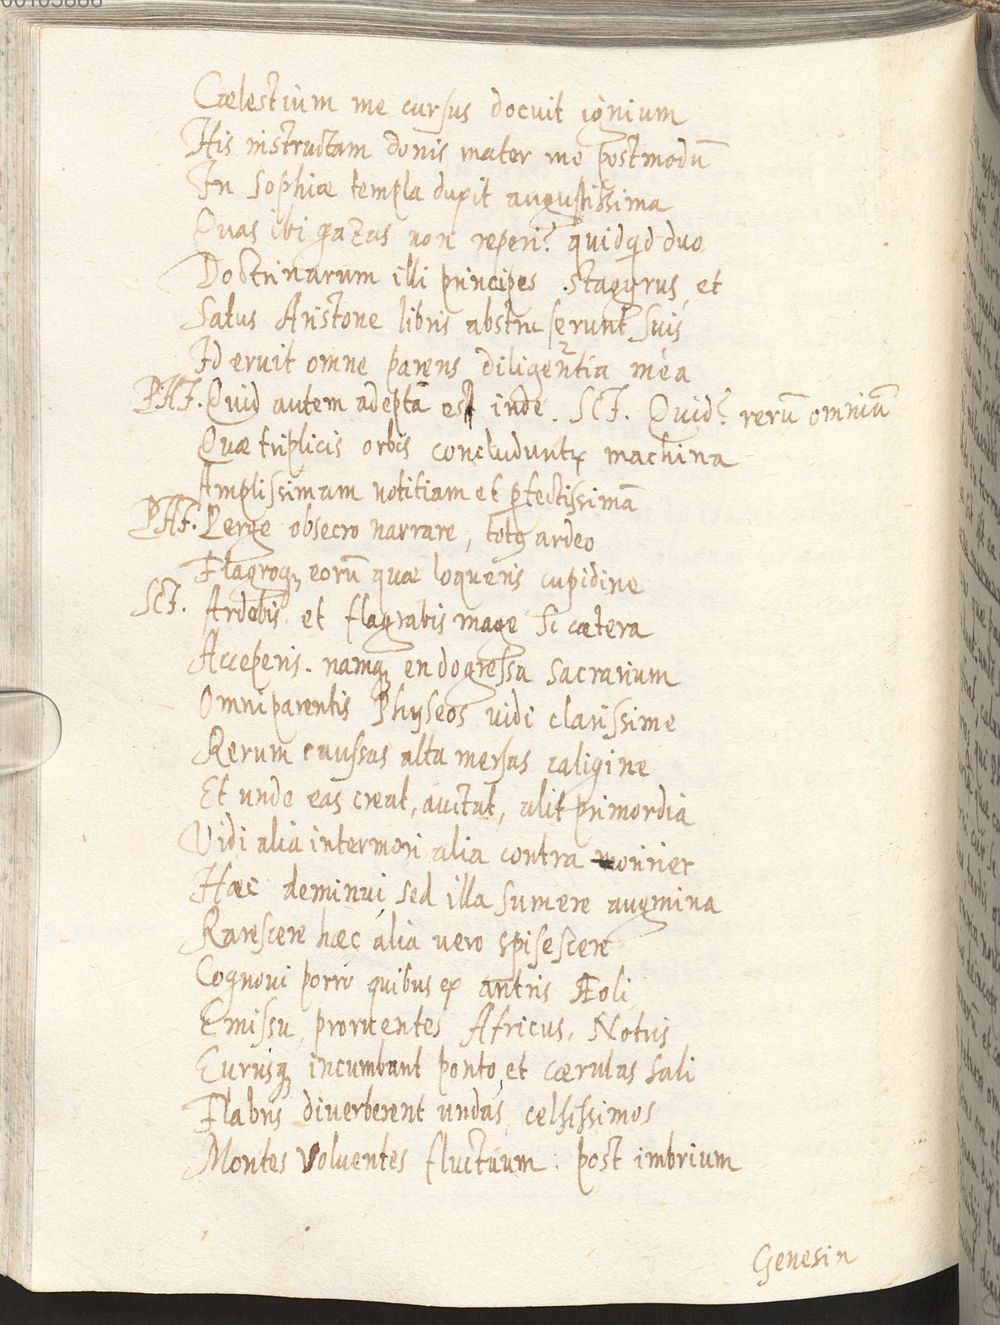 Cælestium me cursus docuit ignium
His instructam donis mater me postmodū
In Sophiæ templa duxit augustissima
Quas ibi gazas non reperi? quidqd duo
Doctrinarum illi principes Stagyrus, et
Satus Aristone libris abstruserunt suis
Id eruit omne parens diligentia mea
PHI. Quid autem adepta est inde. SCI. Quid? rerū omniū
Quæ triplicis orbis concluduntr machina
Amplissimam notitiam et pfectissimā
PHI. Perge obsecro narrare, totq ardeo
Flagroq, eorū quæ loqueris cupidine
SCI. Ardebis et flagrabis mage si cætera
Acceperis. namq endogressa sacrarium
Omniparentis Physeos vidi clarissime
Rerum caussas alta mersas caligine
Et unde eas creat, auctat, alit primordia
Vidi alia intermori alia contra monrier
Hæc deminui, sed illa sumere augmina
Rarescere hæc alia vero spisescere
Cognovi porro quibus ex antris Æoli
Emissu proruentes Africus, Notus
Eurusq incumbant ponto, et cærulas sali
Flabris diverberent undas, celsissimos
Montes volventes fluctuum. post imbrium
Genesin